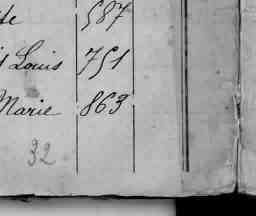 587
Louis 751
Marie 863
32